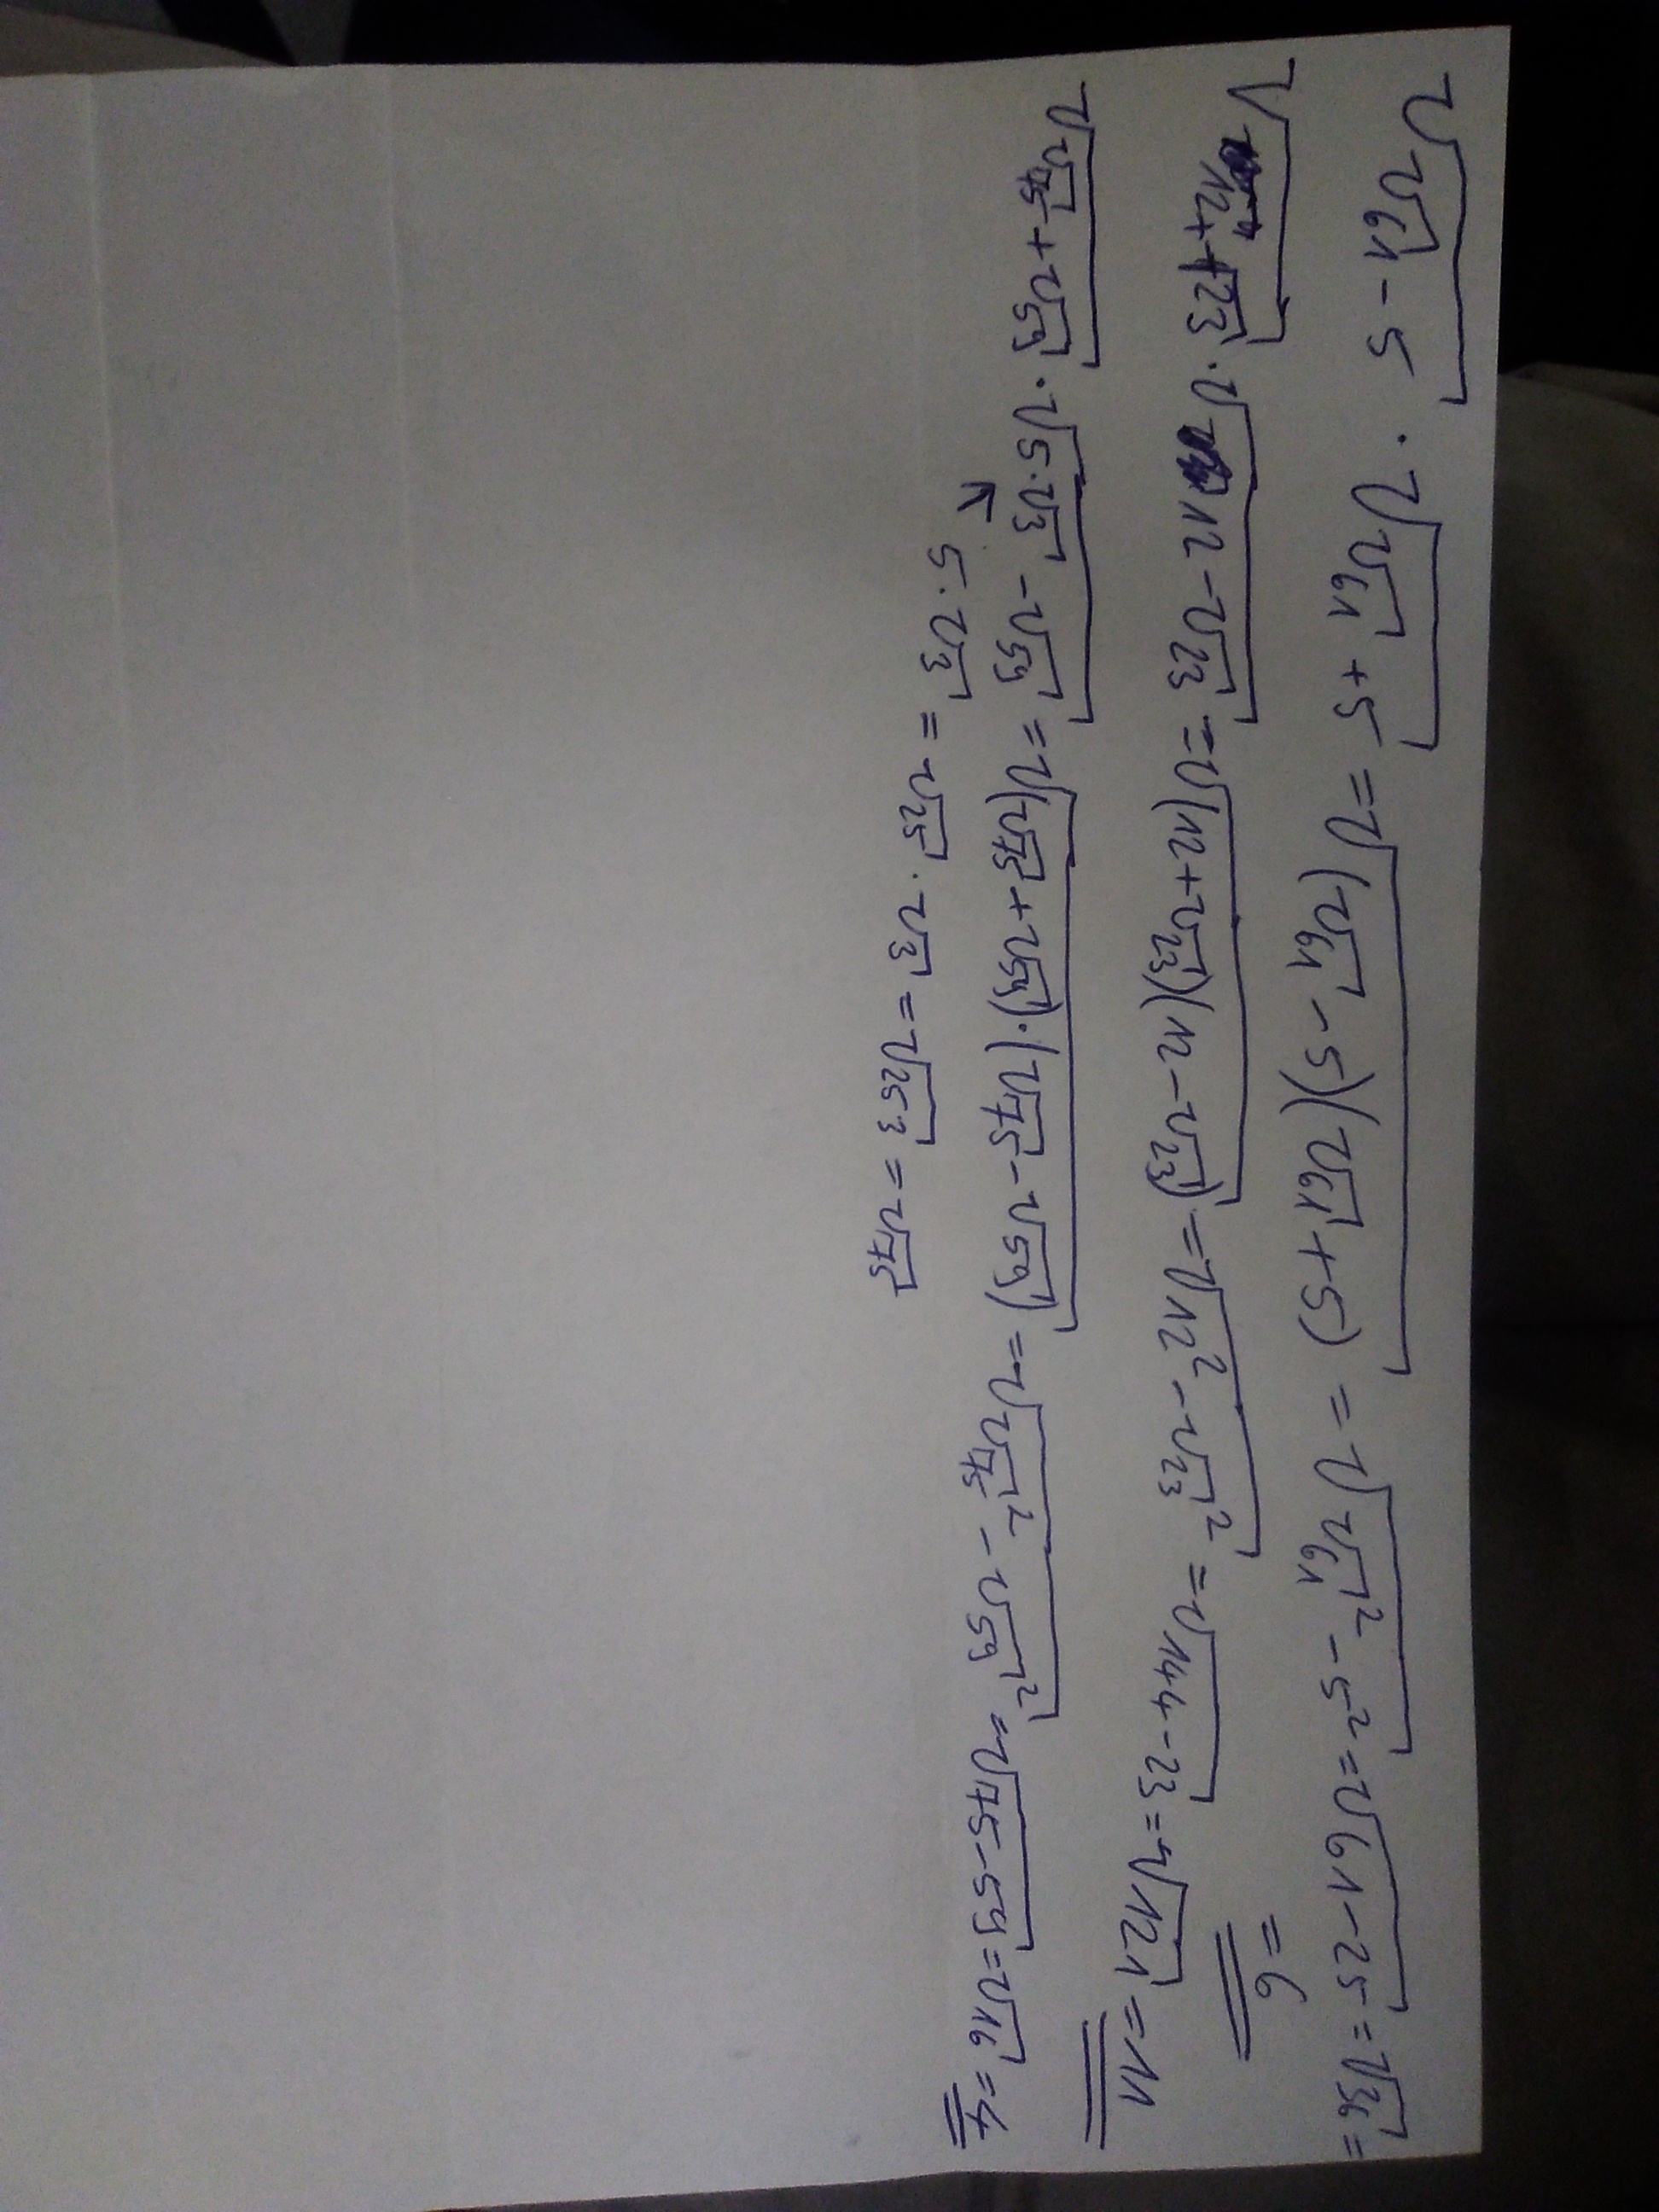 √(√61 - 5) · √(√61 + 5) = √((√61 - 5)(√61 + 5)) = √(√61² - 5²) = √(61 - 25) = √36 =
= 6
√(12 + √23) · √(12 - √23) = √((12 + √23)(12 - √23)) = √(12² - √23²) = √(144 - 23) = √121 = 11
√(√75 + √59) · √(5·√3 - √59) = √((√75 + √59)·(√75 - √59)) = √(√75² - √59²) = √(75 - 59) = √16 = 4
5·√3 = √25 · √3 = √(25·3) = √75